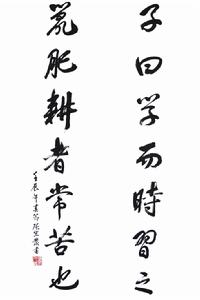 子曰学而時習之
肥耕者常苦也
壬辰年春節書